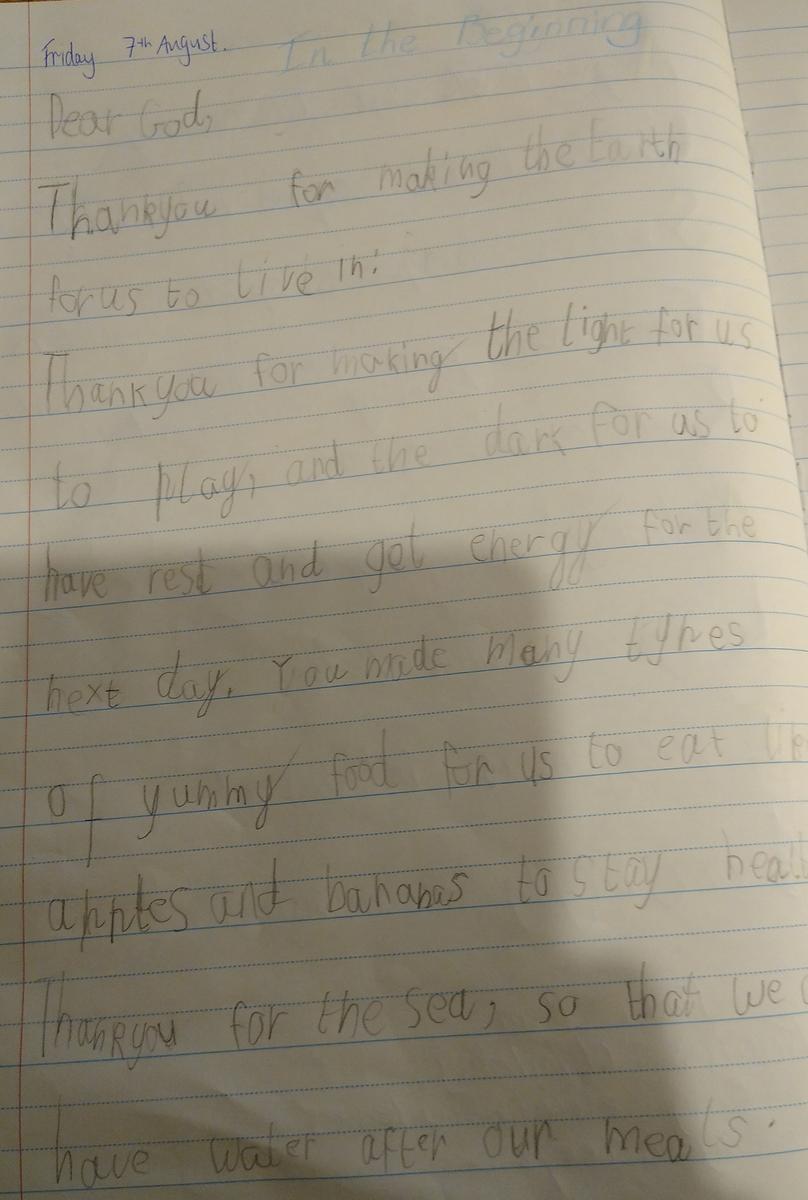 Friday 7th August. In the Beginning
Dear God,
Thankyou for making the Earth
for us to live in.
Thankyou for making the light for us
to play, and the dark for us to
have rest and get energy for the
next day. You made many types
of yummy food for us to eat
apples and bananas to stay
Thankyou for the sea, so that we
have water after our meals.